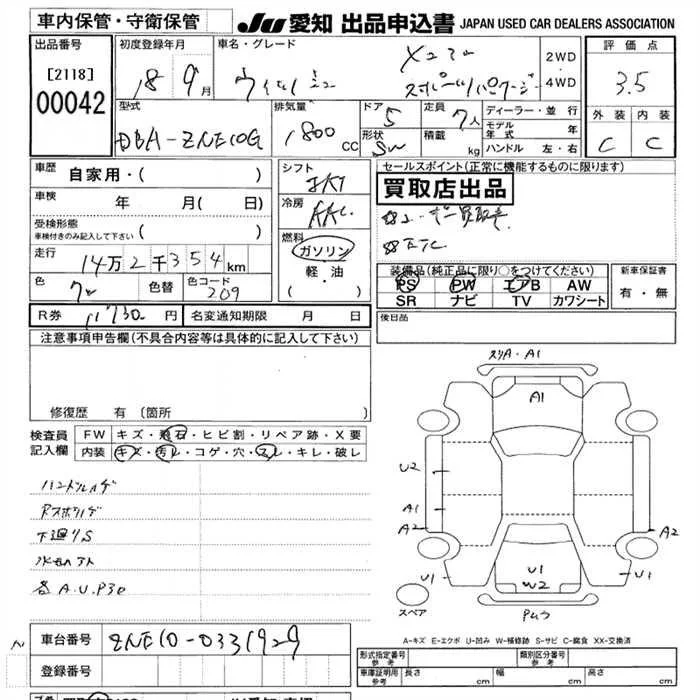 車内保管・守衛保管 JU 愛知 出品申込書 JAPAN USED CAR DEALERS ASSOCIATION
出品番号
[2118]
00042
初度登録年月
18 9月
車名・グレード
ウィッシュ X
2WD
4WD
評価点
3.5
外装 内装
C C
型式
DBA-ZNE10G
排気量
1800 CC
ドア 5
形状 SW
定員 7人
積載 kg
ディーラー・並行
モデル年式 年
ハンドル 左・右
車歴 自家用・( )
車検 年 月( 日)
受検形態
車検付きのみ記入して下さい ( )
走行 14万2千354km
色
色替
色コード 209
シフト
冷房 AAC
燃料
ガソリン
軽・油
・( )
セールスポイント(正常に機能するものに限ります)
買取店出品
ETC
装備品(純正品に限り○をつけてください)
PS PW エアB AW
SR ナビ TV カワシート
新車保証書
有・無
R券 11730円 名変通知期限 月 日
後日品
注意事項申告欄(不具合内容等は具体的に記入して下さい)
修復歴 有 (箇所
検査員記入欄
FW キズ・飛石・ヒビ割・リペア跡・X要
内装 キズ・汚レ・コゲ・穴・スレ・キレ・破レ
ハンドルハゲ
下廻りS
各A.U.P3e
スリA・A1
A1
U2
A1
A2
A2
U1
U1
U1
W2
スペア
A-キズ E-エクボ U-凹み W-補修跡 S-サビ C-腐食 XX-交換済
車台番号 ZNE10-0331929
登録番号
形式指定番号 参考
類別区分番号 参考
車庫証明用 参考 長さ cm 幅 cm 高さ cm